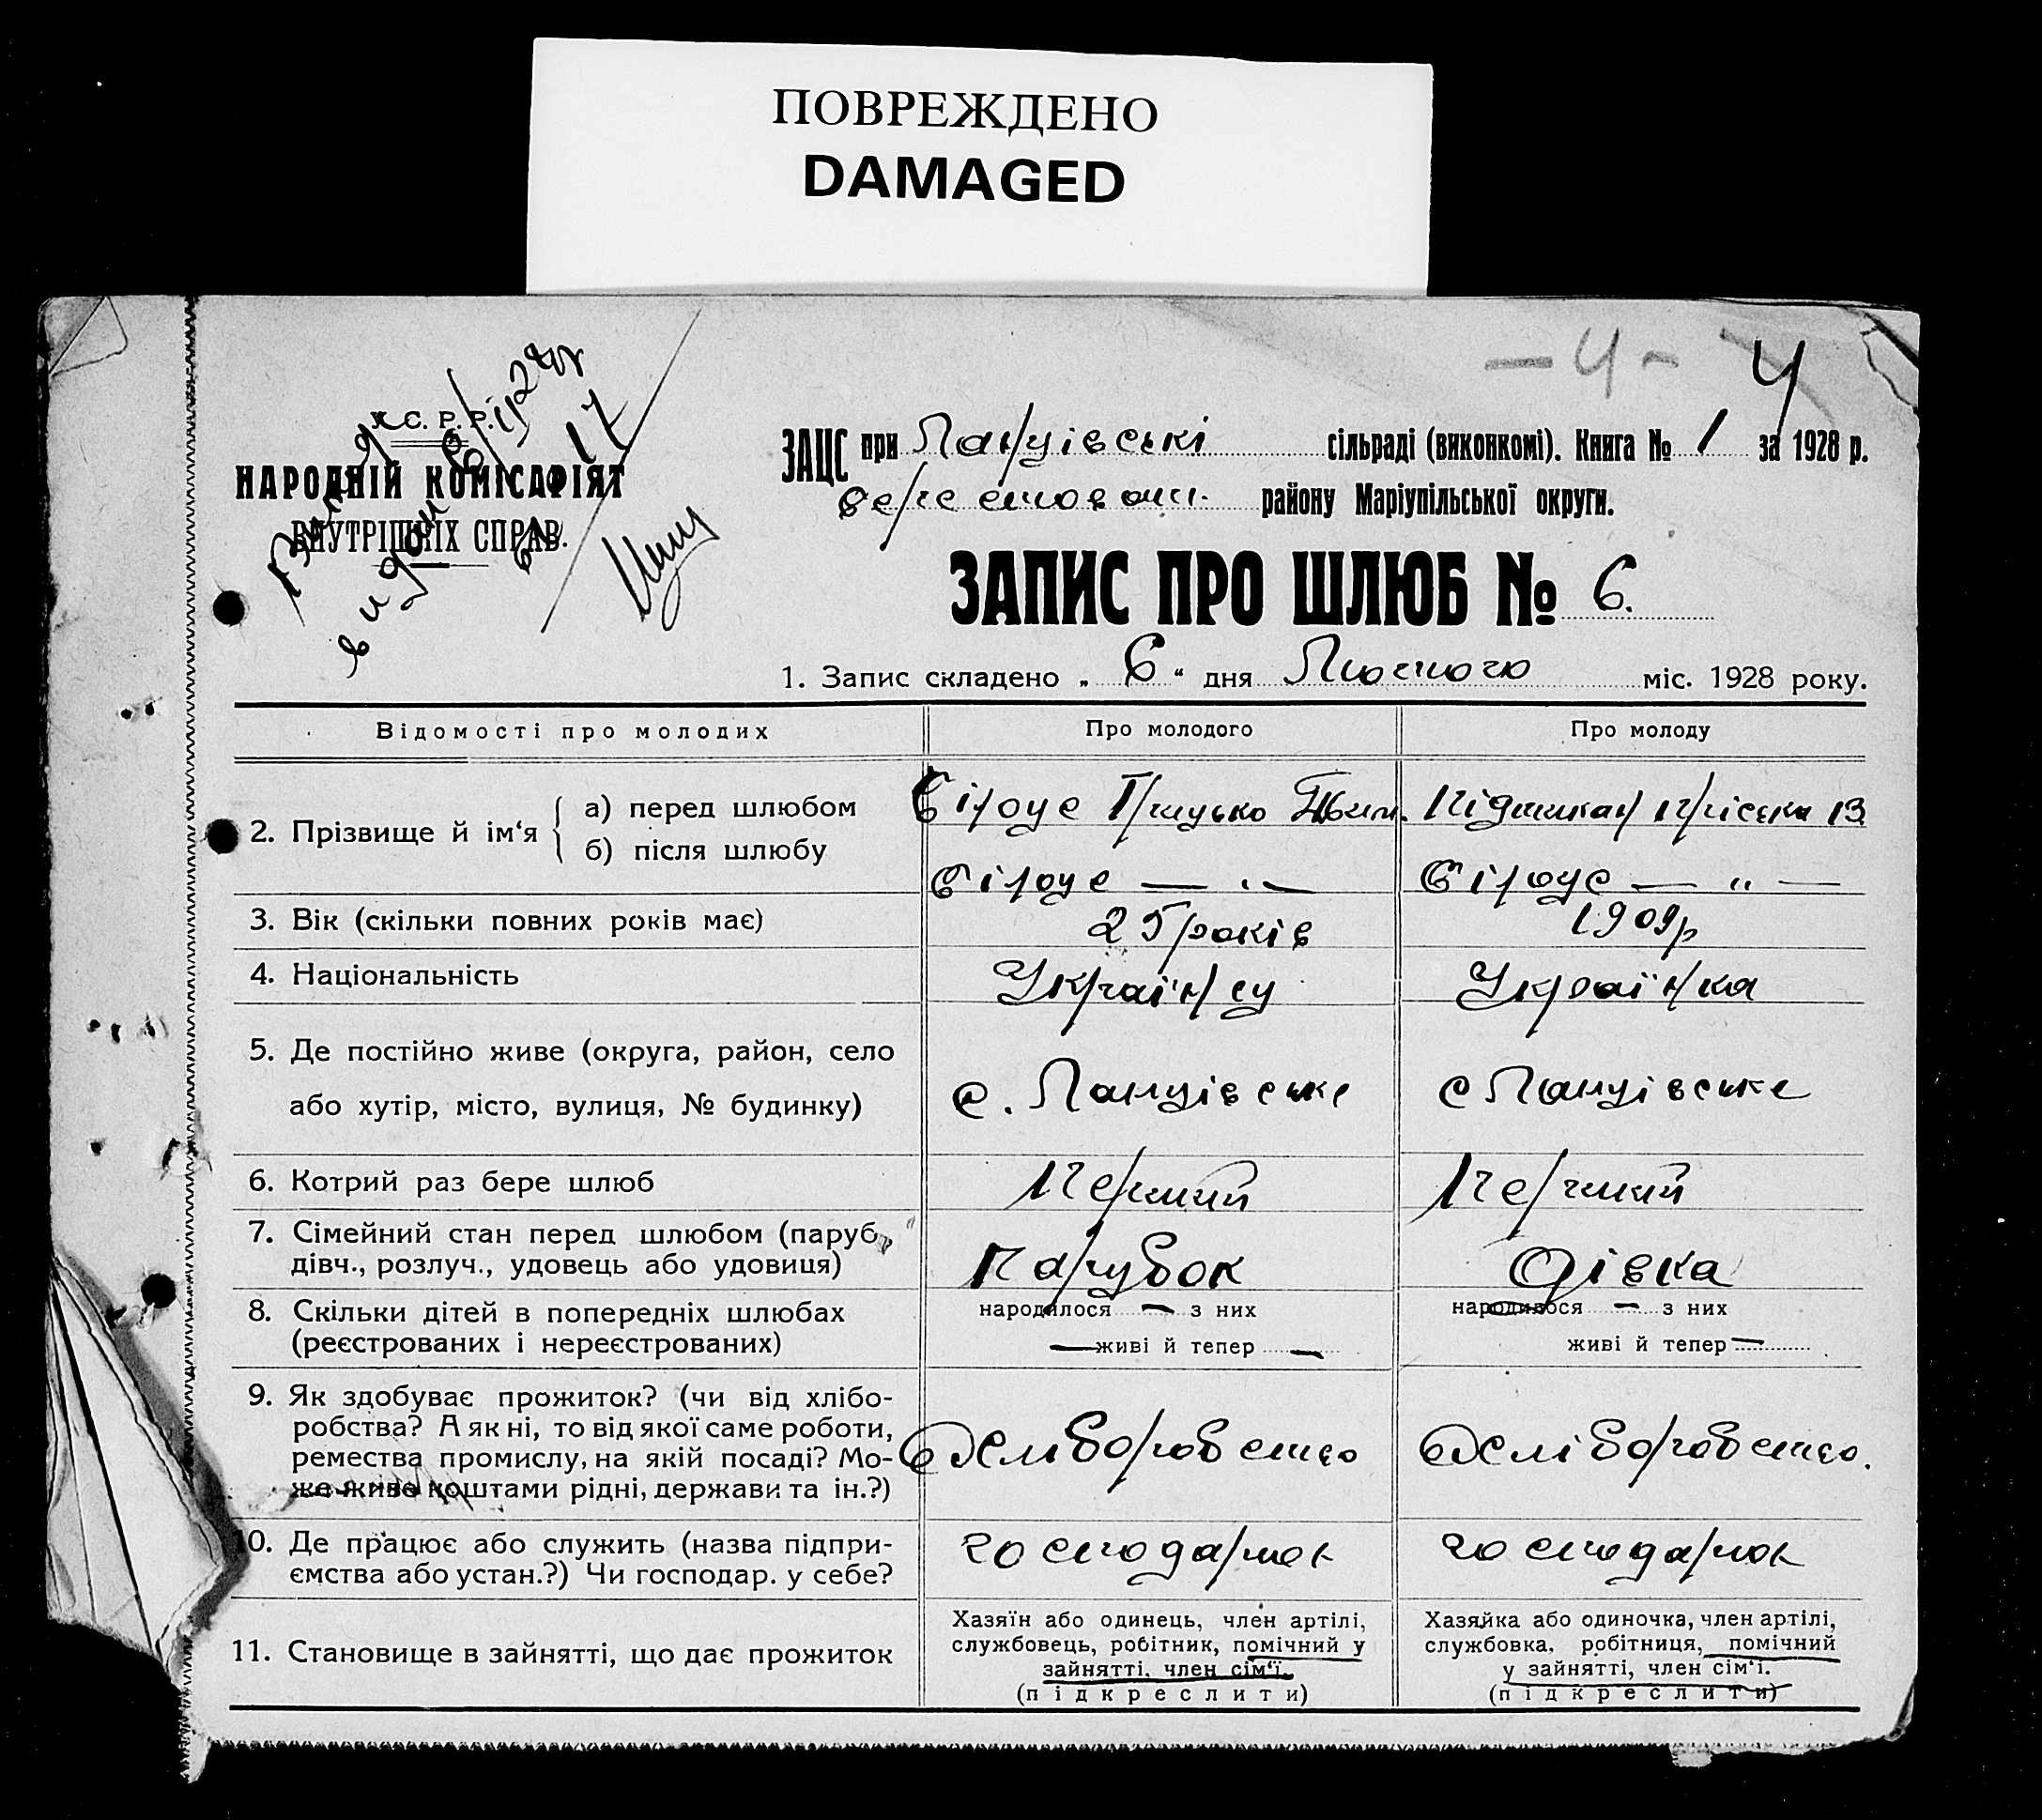 ПОВРЕЖДЕНО
DAMAGED
- 4 - 4
У.С.Р.Р.
НАРОДНІЙ КОМІСАРІЯТ
ВНУТРІШНІХ СПРАВ.
17
ЗАЦС при Ланцівські сільраді (виконкомі). Книга № 1 за 1928 р.
району Маріупільської округи.
ЗАПИС ПРО ШЛЮБ № 6.
1. Запис складено „ 6 “ дня Лютого міс. 1928 року.
Відомості про молодих Про молодого Про молоду
2. Прізвище й ім‘я
а) перед шлюбом Білоус Грицько
б) після шлюбу Білоус — „ — Білоус — „ —
3. Вік (скільки повних років має) 25 років 1909р
4. Національність Українец Українка
5. Де постійно живе (округа, район, село
або хутір, місто, вулиця, № будинку) с. Ланцівське с Ланцівське
6. Котрий раз бере шлюб Перший Перший
7. Сімейний стан перед шлюбом (паруб.,
дівч., розлуч., удовець або удовиця) Парубок Дівка
8. Скільки дітей в попередніх шлюбах народилося — з них народилося — з них
(реєстрованих і нереєстрованих) — живі й тепер — живі й тепер —
9. Як здобуває прожиток? (чи від хлібо-
робства? А як ні, то від якої саме роботи,
ремества промислу, на якій посаді? Мо- хліборобство хліборобство.
же живе коштами рідні, держави та ін.?)
10. Де працює або служить (назва підпри-
ємства або устан.?) Чи господар. у себе?
11. Становище в зайнятті, що дає прожиток
Хазяїн або одинець, член артілі,
службовець, робітник, помічний у
зайнятті, член сім‘ї.
(підкреслити)
Хазяйка або одиночка, член артілі,
службовка, робітниця, помічний
у зайнятті, член сім‘ї.
(підкреслити)